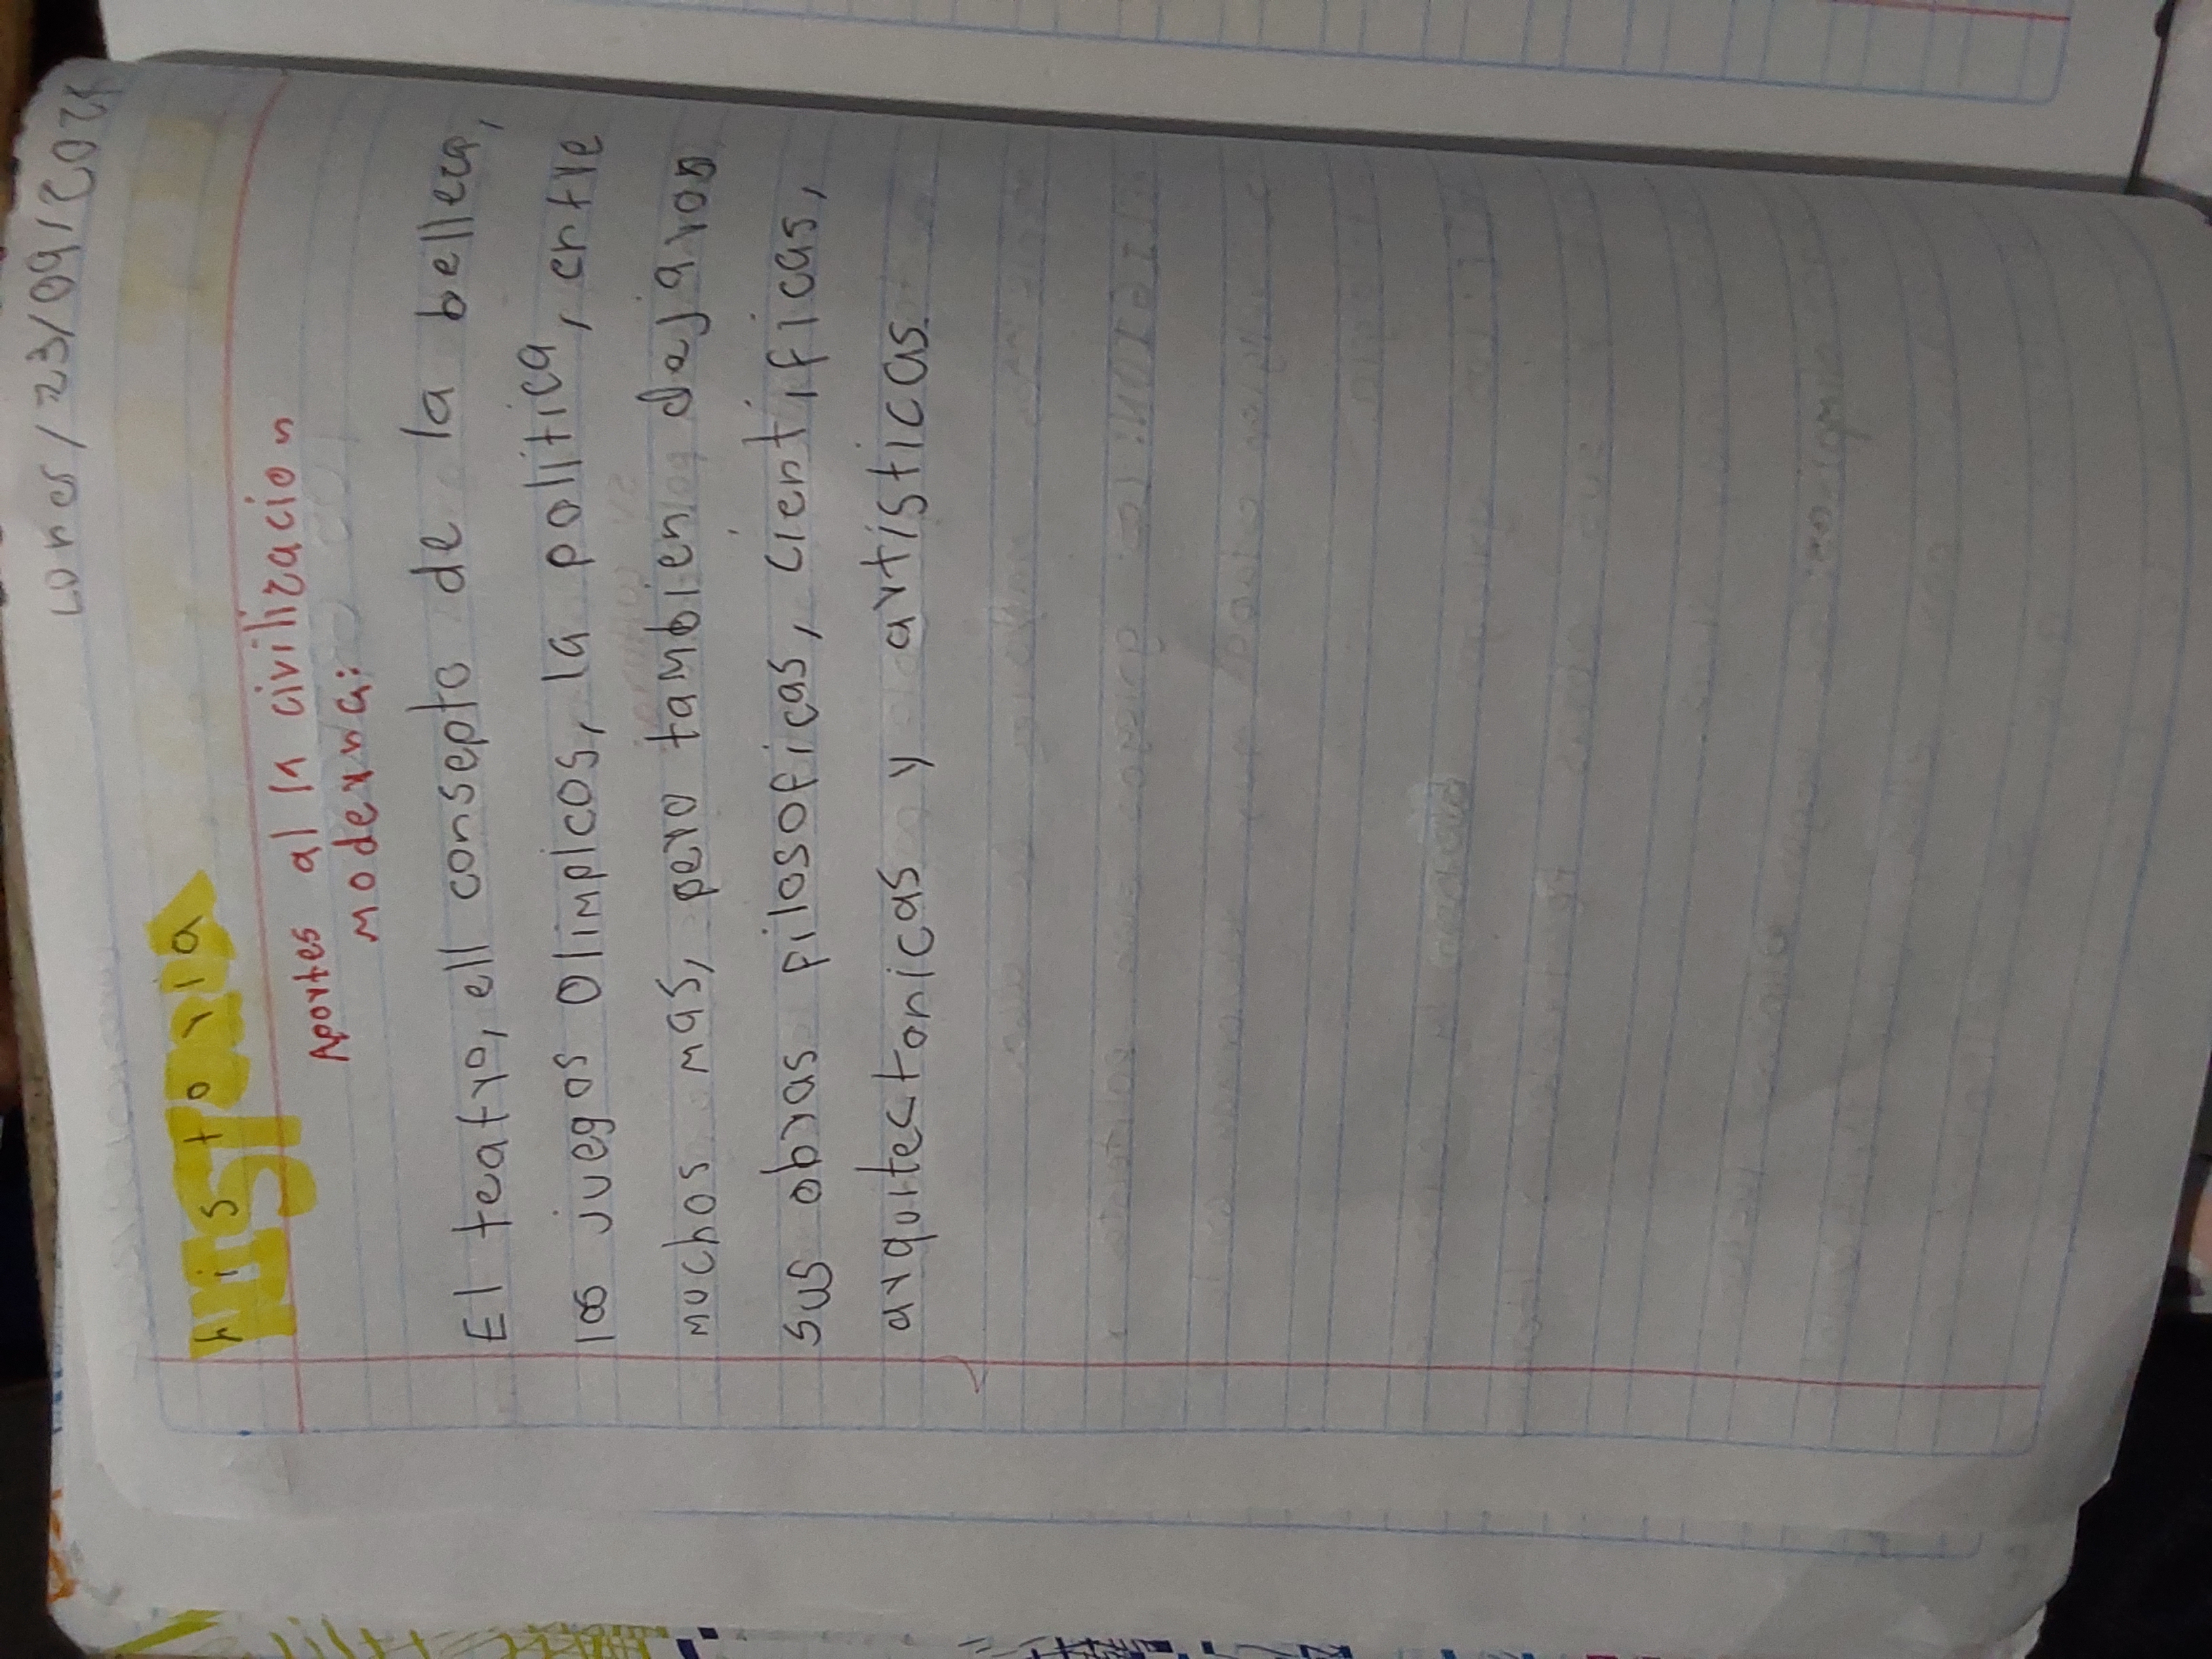 /23/09/202
Historia
Aportes al la civilizacion
moderna:
El teatro, ell consepto de la belleca,
los juegos Olimpicos, la politica, entre
muchos mas, pero tambien dejaron
sus obras filosoficas, cientificas,
arquitectonicas y artisticas.